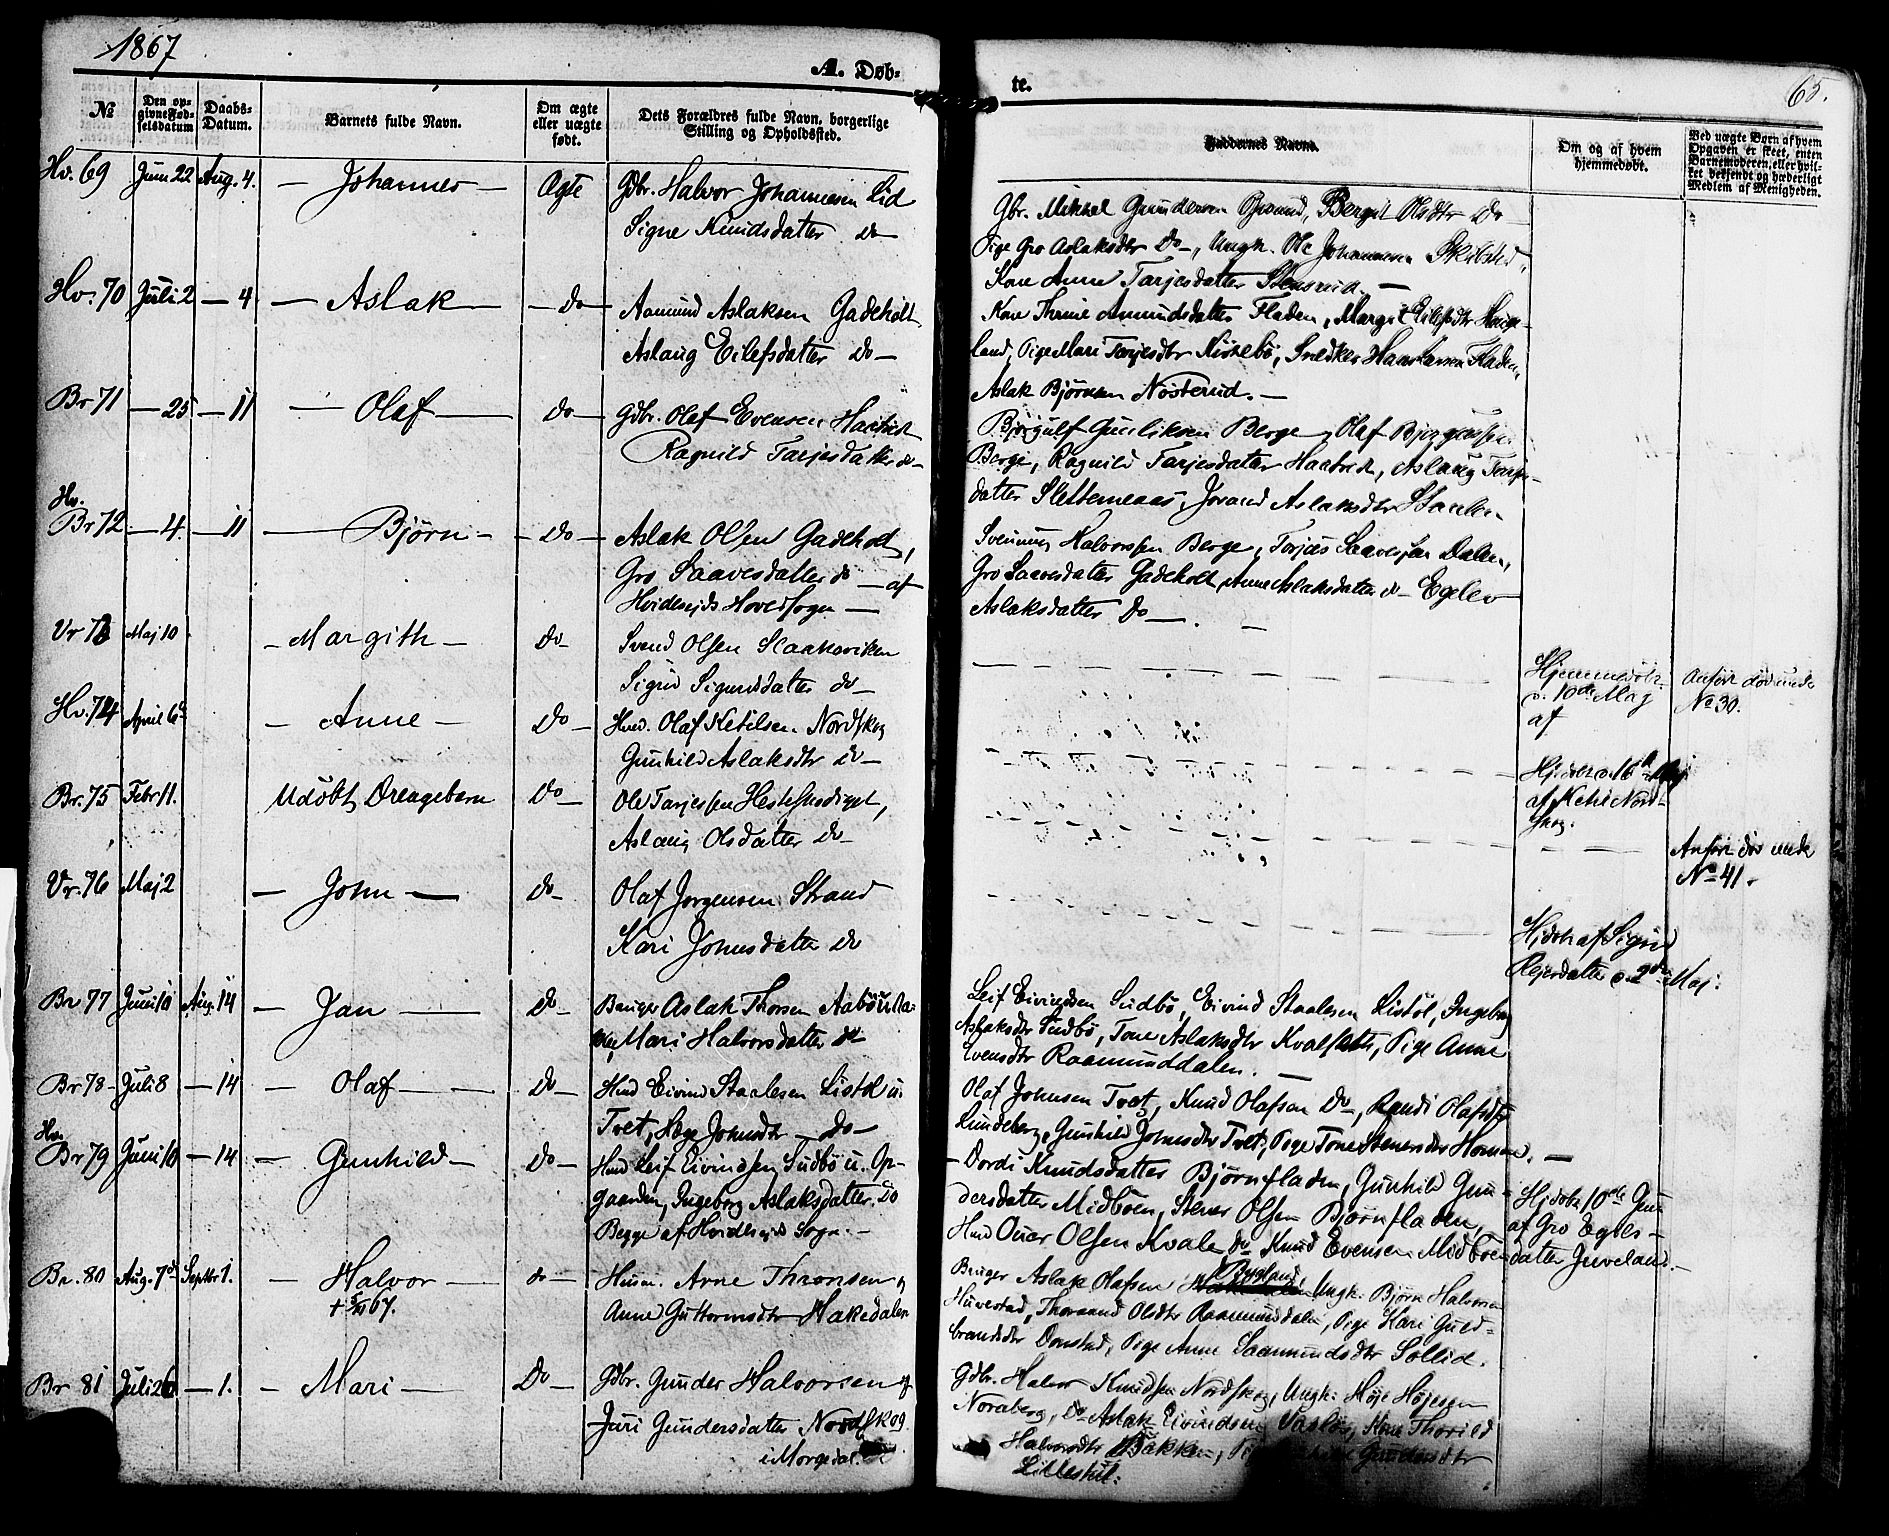 1867
A. Døb-
te.
65.
№
Den op-
givne Fød-
selsdatum
Daabs-
Datum.
Barnets fulde Navn.
Om ægte
eller uægte
født.
Dets Forældres fulde Navn, borgerlige
Stilling og Opholdssted.
Faddernes Navne.
Om og af hvem
hjemmedøbt.
Ved uægte Børn af hvem
Opgaven er skeet, enten
Barnemoderen, eller hvil-
ket bekjendt og hæderligt
Medlem af Menigheden.
Hv. 69 Juni 22 Aug. 4. — Johannes — Ægte Gdbr. Halvor Johannesen Lid
Signe Knudsdatter do —
Gbr. Mikkel Gundersen Bergit Olsdtr do
Pige Gro Aslaksdtr do —, Ungk. Ole Johannesen
Kone Anne Tarjesdatter —
Hv. 70 Juli 2 — 4 — Aslak — do — Aamund Aslaksen Gadeholt
Aslaug Eilefsdatter do —
Kone Thrine Amundsdatter Fladen, Margit Eilefsdtr Hauge-
land, Pige Mari Tarjesdtr Kistebø, Snedker Hans Larsen Fladen,
Aslak Bjørnsen Nøsterud. —
Br 71 — 25 — 11 — Olaf — do — Gdbr. Olaf Evensen Haatveit
Ragnild Tarjesdatter do —
Bjørgulf Gunliksen Berge, Olaf
Berge, Ragnild Tarjesdatter Haatvedt, Aslaug Tarjes-
datter Slettemeaas, Jorand Aslaksdtr
Hv.
Br 72 — 4. — 11 — Bjørn — do — Aslak Olsen Gadeholt,
Gro Saavesdatter do — af
Hvidesejds Hovedsogn —
Svennung Halvorssen Berge, Tarjes Saavessen Dalen,
Gro Saavesdatter Gadeholt, Anne Aslaksdatter do — Egelev
Aslaksdatter do —
Vr 73 Maj 10 — Margith — do — Svend Olsen Slaakaviken
Sigrid Sigurdsdatter do —
Hjemmedøbt
d. 10de Maj
af
Anført død under
No 30.
Hv. 74 April 6d — Anne — do — Hmd. Olaf Ketilsen Nordskog
Gunhild Aslaksdtr do —
Hjdøbt d. 16d Maj
af Ketil Nord-
skog.
Br. 75 Febr 11. Udøbt Drengebarn do — Ole Tarjessen
Aslaug Olsdatter do —
Anført død under
No 41.
Vr. 76 Maj 2 — John — do — Olaf Jørgensen Strand
Kari Johnsdatter do
Hjdøbt af Sigrid
datter d. 2den Maj.
Br 77 Juni 10 Aug. 14 — Jan — do — Bruger Aslak Thorsen
Mari Halvorsdatter do
Leif Eivindsen Sudbø, Eivind Staalesen Listøl, Ingeborg
Aslaksdtr Sudbø, Tone Aslaksdtr Pige Anne
Evensdtr Raamunddalen. —
Br 78 Juli 8 — 14 — Olaf — do — Hmd Eivind Staalesen Listøl u.
Tvet, Hege Johnsdtr — do —
Olaf Johnsen Tvet, Knud Olafsen do —, Randi Olafsdtr
Lundeberg, Gunhild Johnsdtr Tvet, Pige Tone Stenersdtr Homme. —
Hv.
Br 79 Juni 10 — 14 — Gunhild — do — Hmd Leif Eivindsen Sudbø u. Op-
gaarden, Ingeborg Aslaksdatter do
Begge af Hvidesejds Sogn. —
— Dordi Knudsdatter Bjørnfladen, Gunhild Gun-
dersdatter Midbøen, Stener Olsen Bjørnfladen,
Hmd Olsen Kvale do Knud Evensen Midbøen
Hjdøbt 10de Juni
af Gro Egels-
datter Juveland. —
Br. 80 Aug. 7d Septbr 1. — Halvor — do — Husm. Arne Thronsen og
+ 67.
Anne Guttormsdtr Hakedalen
Bruger Aslak Olafsen Bygland, Ungk. Bjørn Halvorsen
Huvestad, Thorand Olsdtr Raamunddalen, Pige Kari Guld-
brandsdtr Donstad, Pige Anne Saamundsdtr Sollid.
Br 81 Juli 26 — 1. — Mari — Do — Gdbr. Gunder Halvorsen og
Juri Gundersdatter Nordskog
i Morgedal.
Gdbr. Halvor Knudsen Nordskog, Ungk. Høje Højesen
Noraberg, do Aslak Eivindsen Kone Thorild
Halvorsdtr Bakken, Gundersdtr